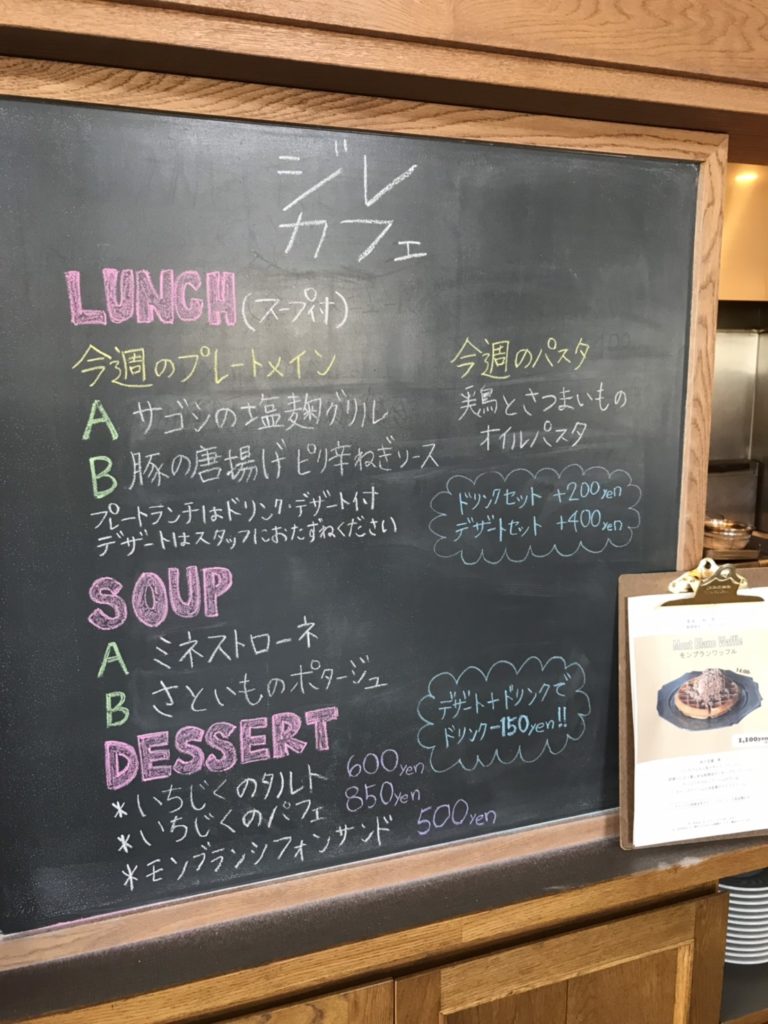 ジレ
カフェ
LUNCH (スープ付)
今週のプレートメイン
A サゴシの塩麹グリル
B 豚の唐揚げピリ辛ねぎソース
プレートランチはドリンク・デザート付
デザートはスタッフにおたずねください
今週のパスタ
鶏とさつまいもの
オイルパスタ
ドリンクセット +200yen
デザートセット +400yen
SOUP
A ミネストローネ
B さといものポタージュ
デザート+ドリンクで
ドリンク-150yen!!
DESSERT
*いちじくのタルト 600yen
*いちじくのパフェ 850yen
*モンブランシフォンサンド 500yen
Mont Blanc Waffle
モンブランワッフル
14:00
1,100yen